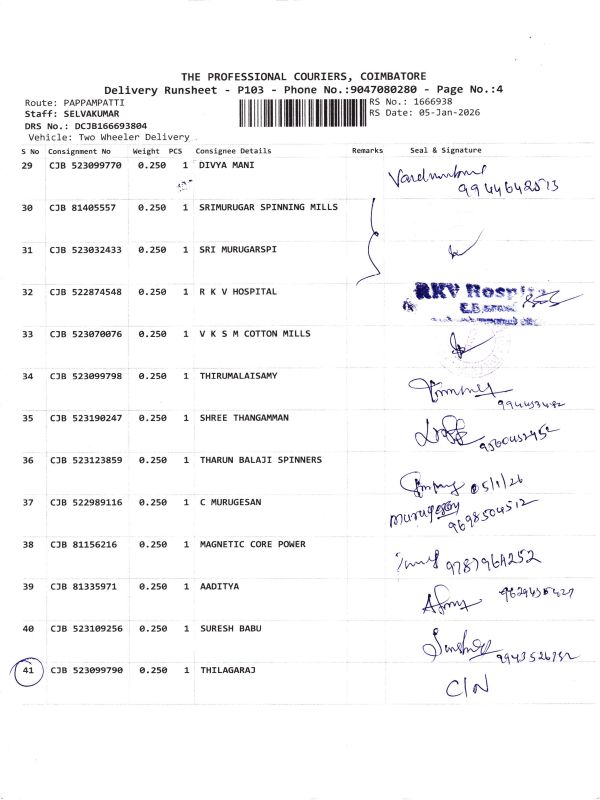 THE PROFESSIONAL COURIERS, COIMBATORE
Delivery Runsheet - P103 - Phone No.:9047080280 - Page No.:4
Route: PAPPAMPATTI RS No.: 1666938
Staff: SELVAKUMAR RS Date: 05-Jan-2026
DRS No.: DCJB166693804
Vehicle: Two Wheeler Delivery
S No Consignment No Weight PCS Consignee Details Remarks Seal & Signature
29 CJB 523099770 0.250 1 DIVYA MANI
9944642513
30 CJB 81405557 0.250 1 SRIMURUGAR SPINNING MILLS
31 CJB 523032433 0.250 1 SRI MURUGARSPI
32 CJB 522874548 0.250 1 R K V HOSPITAL RKV Hospital
33 CJB 523070076 0.250 1 V K S M COTTON MILLS
34 CJB 523099798 0.250 1 THIRUMALAISAMY
35 CJB 523190247 0.250 1 SHREE THANGAMMAN
36 CJB 523123859 0.250 1 THARUN BALAJI SPINNERS
05/1/26
37 CJB 522989116 0.250 1 C MURUGESAN
9698504512
38 CJB 81156216 0.250 1 MAGNETIC CORE POWER
39 CJB 81335971 0.250 1 AADITYA
40 CJB 523109256 0.250 1 SURESH BABU
9943526732
41 CJB 523099790 0.250 1 THILAGARAJ
C/N